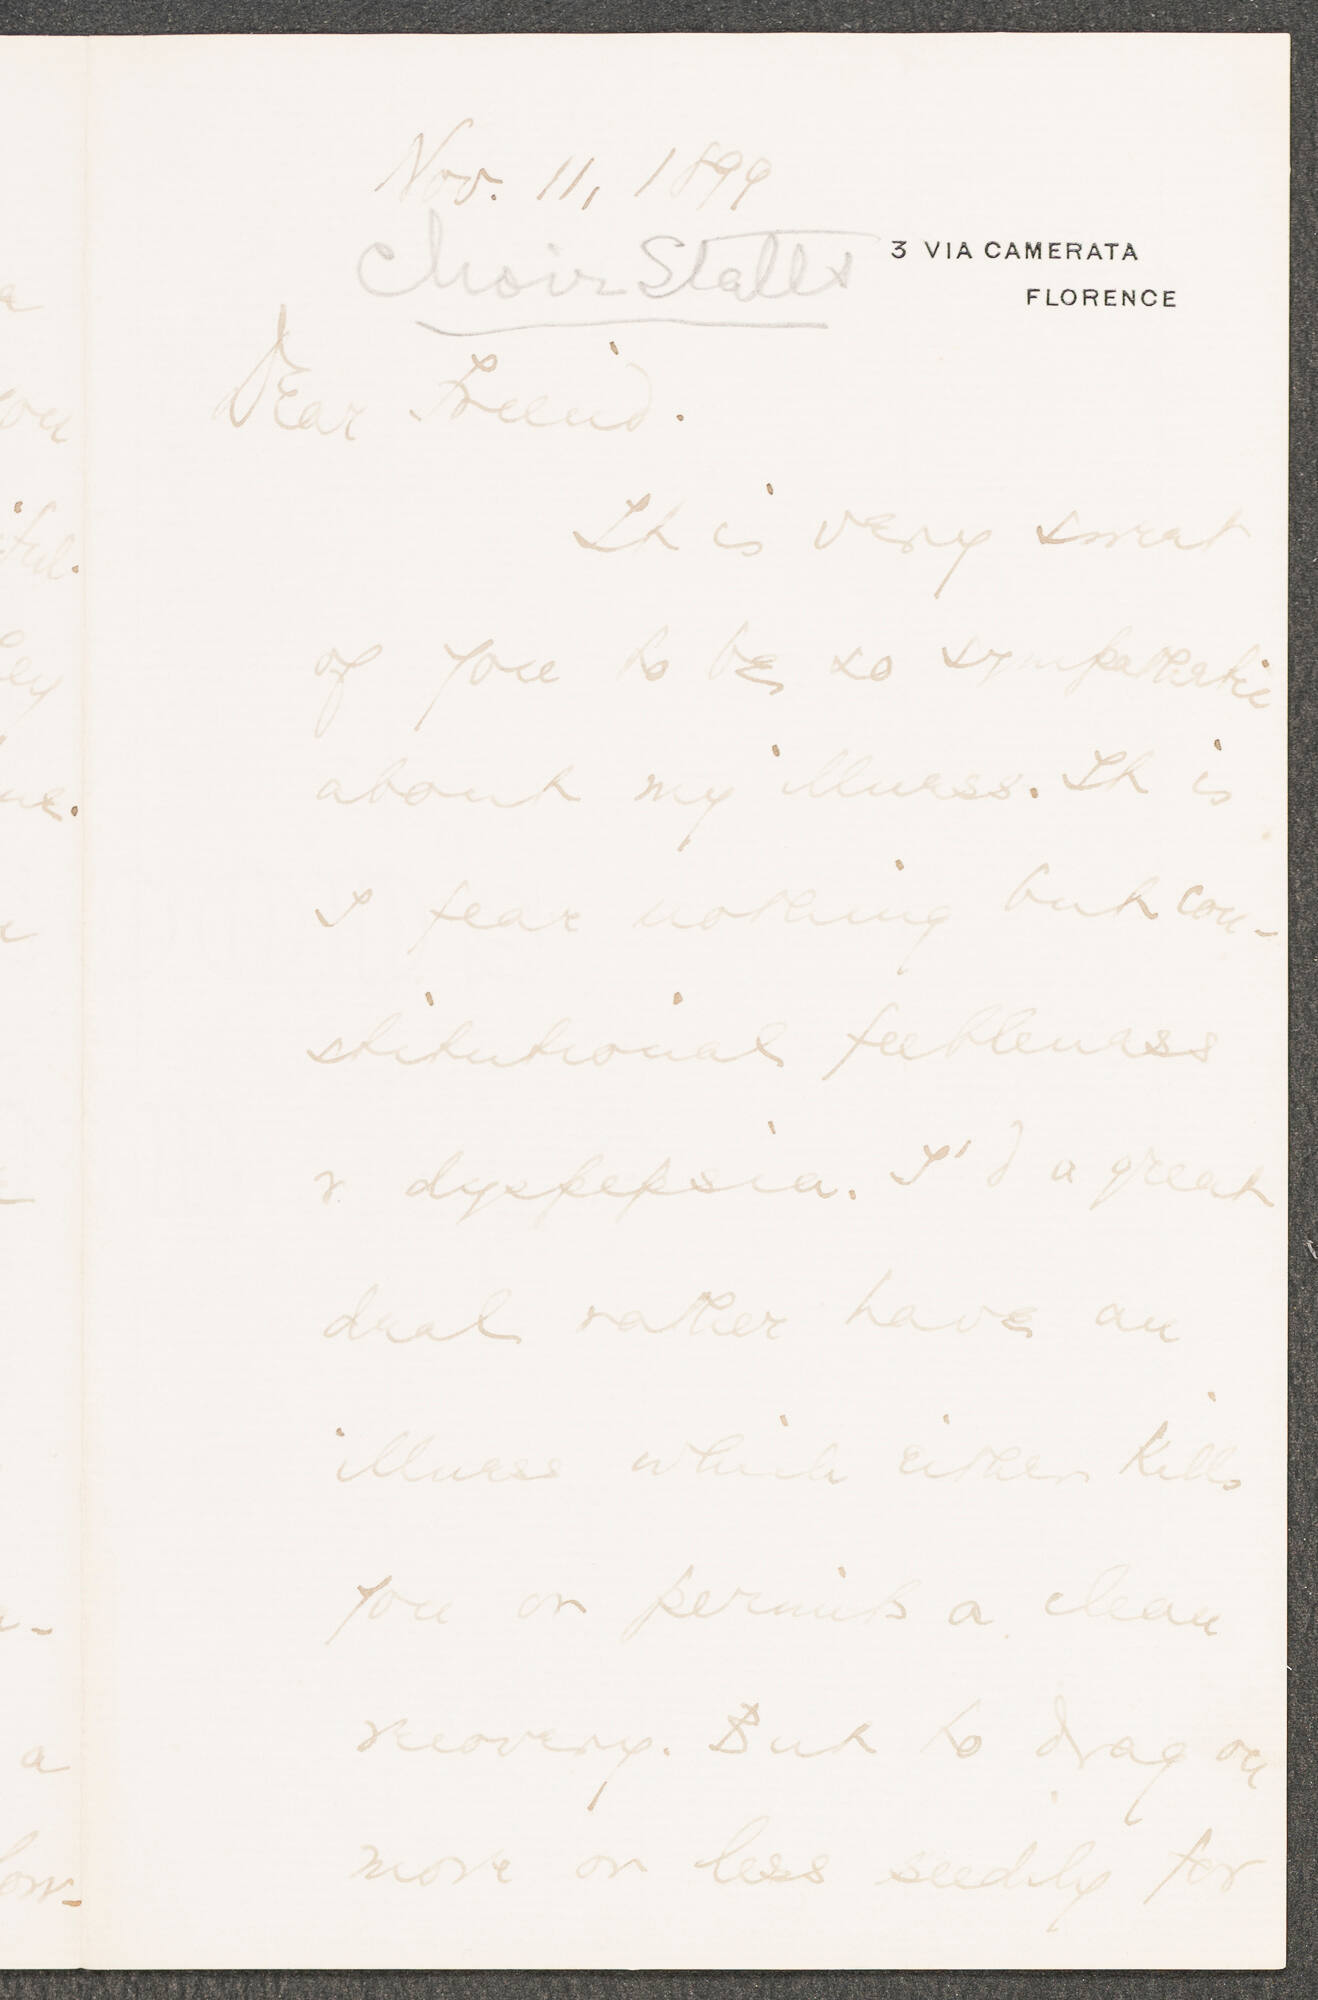 Nov. 11, 1899
Choir Stalls
3 VIA CAMERATA
FLORENCE
Dear Friend.
It is very sweet
of you to be so sympathetic
about my illness. It is
I fear nothing but con-
stitutional feebleness
& dyspepsia. I'd a great
deal rather have an
illness which either kills
you or permits a clean
recovery. But to drag on
more or less seedily for